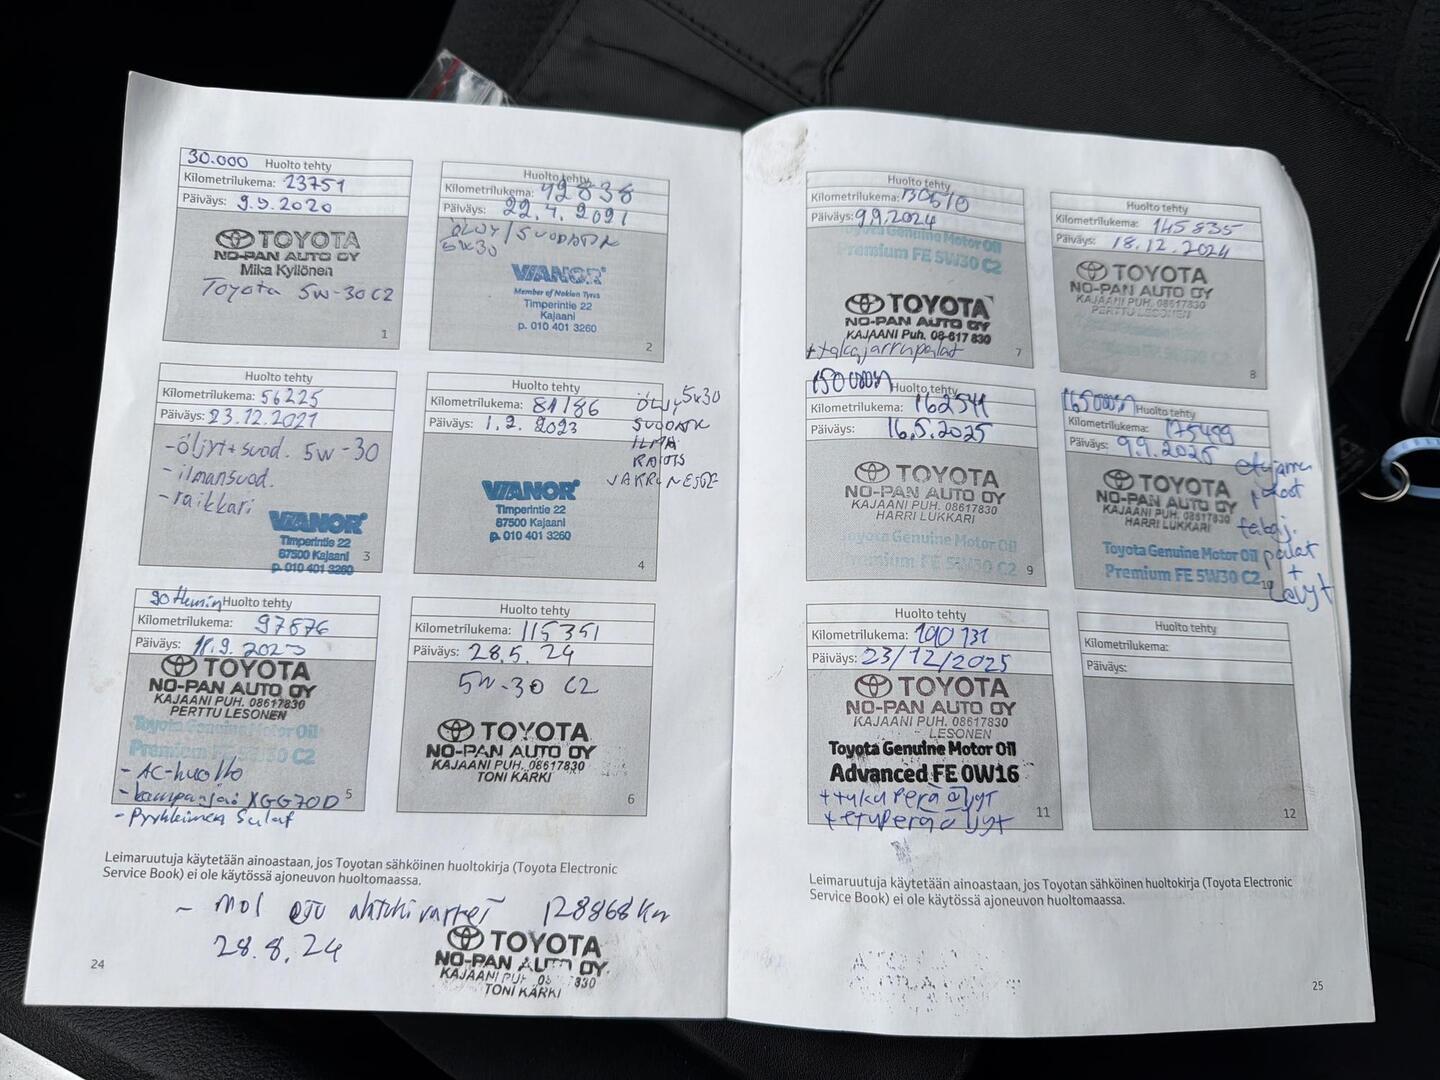 30.000 Huolto tehty
Kilometrilukema: 23751
Päiväys: 9.9.2020
TOYOTA
NO-PAN AUTO OY
Mika Kyllönen
Toyota 5W-30 C2
1
Huolto tehty
Kilometrilukema: 42838
Päiväys: 22.4.2021
ÖLJY/SUODATIN
5W30
VIANOR
Member of Nokian Tyres
Timperintie 22
Kajaani
p. 010 401 3260
2
Huolto tehty
Kilometrilukema: 56225
Päiväys: 23.12.2021
- öljyt+suod. 5W-30
- ilmansuod.
- raikkari
VIANOR
Timperintie 22
87500 Kajaani
p. 010 401 3260
3
Huolto tehty
Kilometrilukema: 81186
Päiväys: 1.2. 2023
ÖLJY 5x30
SUODATIN
ILMA
RAITIS
JARRUNESTE
VIANOR
Timperintie 22
87500 Kajaani
p. 010 401 3260
4
90 tkm:n Huolto tehty
Kilometrilukema: 97876
Päiväys: 11.9.2023
TOYOTA
NO-PAN AUTO OY
KAJAANI PUH. 08617830
PERTTU LESONEN
Toyota Genuine Motor Oil
Premium FE 5W30 C2
- AC-huolto
- kampanjasi XGG70D
- Pyyhkimen Sulat
5
Huolto tehty
Kilometrilukema: 115351
Päiväys: 28.5. 24
5W-30 C2
TOYOTA
NO-PAN AUTO OY
KAJAANI PUH. 08617830
TONI KÄRKI
6
Leimaruutuja käytetään ainoastaan, jos Toyotan sähköinen huoltokirja (Toyota Electronic
Service Book) ei ole käytössä ajoneuvon huoltomaassa.
- mol etu alatukivarret 128868 Km
28.8.24
TOYOTA
NO-PAN AUTO OY
KAJAANI PUH. 08617830
TONI KÄRKI
24
Huolto tehty
Kilometrilukema: 130610
Päiväys: 9.9.2024
Toyota Genuine Motor Oil
Premium FE 5W30 C2
TOYOTA
NO-PAN AUTO OY
KAJAANI Puh. 08-617 830
+ takajarrupalat
7
Huolto tehty
Kilometrilukema: 145835
Päiväys: 18.12.2024
TOYOTA
NO-PAN AUTO OY
KAJAANI PUH. 08617830
PERTTU LESONEN
Premium FE 5W30 C2
8
150000n Huolto tehty
Kilometrilukema: 162541
Päiväys: 16.5.2025
TOYOTA
NO-PAN AUTO OY
KAJAANI PUH. 08617830
HARRI LUKKARI
Toyota Genuine Motor Oil
Premium FE 5W30 C2
9
165000n Huolto tehty
Kilometrilukema: 175499
Päiväys: 9.9.2025
TOYOTA
NO-PAN AUTO OY
KAJAANI PUH. 08617830
HARRI LUKKARI
Toyota Genuine Motor Oil
Premium FE 5W30 C2
10
etujarru
palat
+
Levyt
Huolto tehty
Kilometrilukema: 190 131
Päiväys: 23/12/2025
TOYOTA
NO-PAN AUTO OY
KAJAANI PUH. 08617830
LESONEN
Toyota Genuine Motor Oil
Advanced FE 0W16
+ takaperä öljyt
+ etuperä öljyt
11
Huolto tehty
Kilometrilukema:
Päiväys:
12
Leimaruutuja käytetään ainoastaan, jos Toyotan sähköinen huoltokirja (Toyota Electronic
Service Book) ei ole käytössä ajoneuvon huoltomaassa.
25